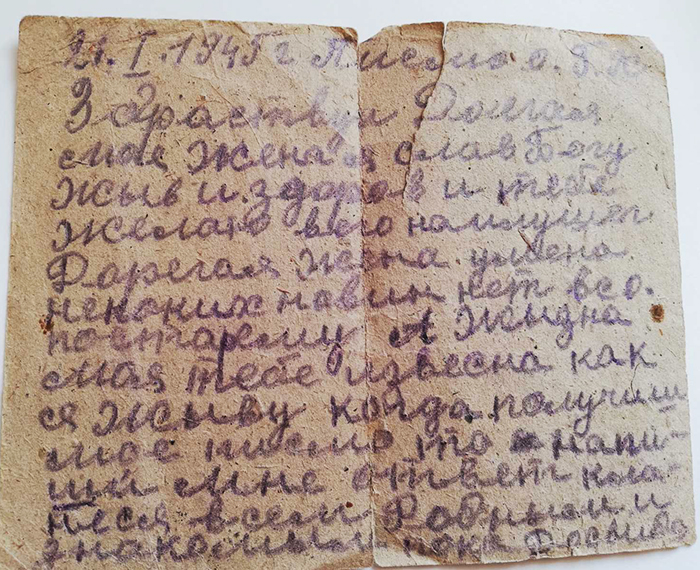 21. I. 1945 г Писмо о. Б. К
Здраствуй Дорогая
моя жена я слав Богу
жыв и здоров и тебе
желаю всего наилущег
Дорегая жена у мена
некоких навин нет всо.
постарему А жызна
мая тебе извесна как
я жыву когда получиш
мое писмо то напи-
ши мне ответ кла-
неся всем Родным и
знакомым пока Досвида